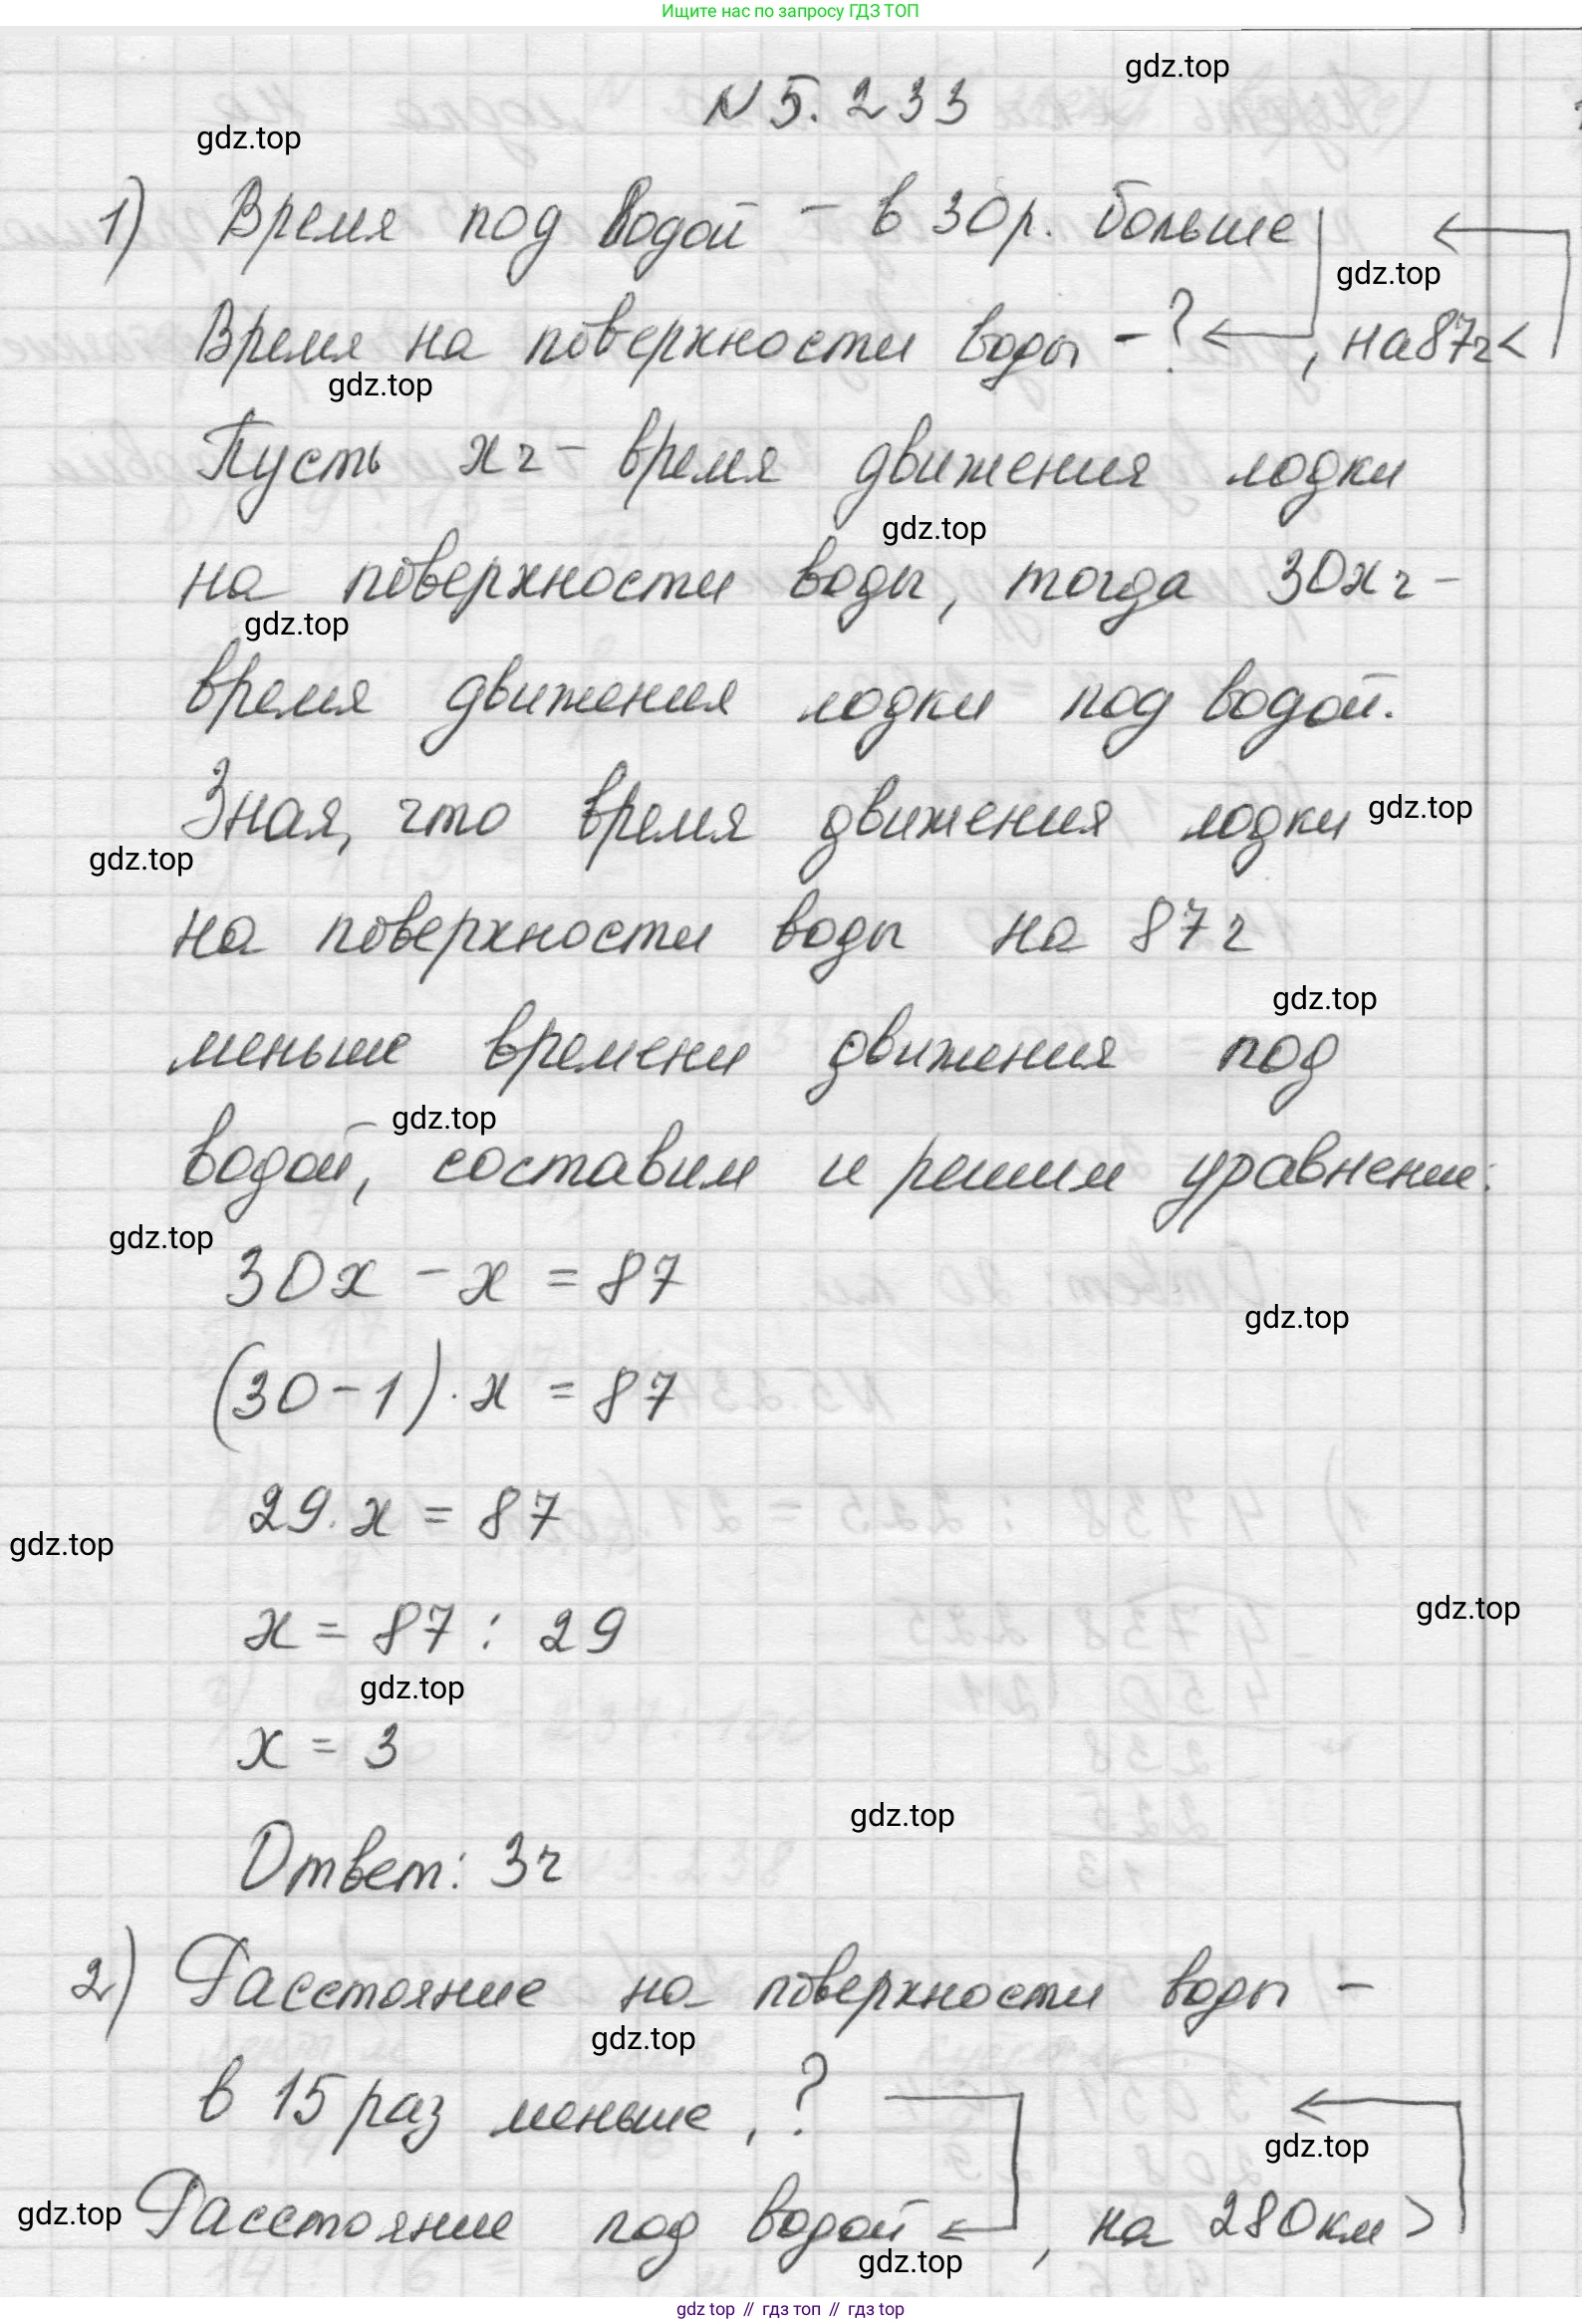 Ищите нас по запросу ГДЗ ТОП
gdz.top
N 5. 233
gdz.top
1) Время под водой - в 30 р. больше
gdz.top
Время на поверхности воды - ? , на 87ч <
gdz.top
Пусть xч - время движения лодки
gdz.top
на поверхности воды, тогда 30xч -
gdz.top
время движения лодки под водой.
Зная, что время движения лодки
gdz.top
gdz.top
на поверхности воды на 87ч
gdz.top
меньше времени движения под
gdz.top
водой, составим и решим уравнение:
gdz.top
30x - x = 87
gdz.top
(30-1)·x = 87
29·x = 87
gdz.top
gdz.top
x = 87 : 29
gdz.top
x = 3
gdz.top
Ответ: 3ч
2) Расстояние на поверхности воды -
gdz.top
в 15 раз меньше, ?
gdz.top
gdz.top
Расстояние под водой , на 280км >
gdz.top
gdz top // гдз топ // гдз top